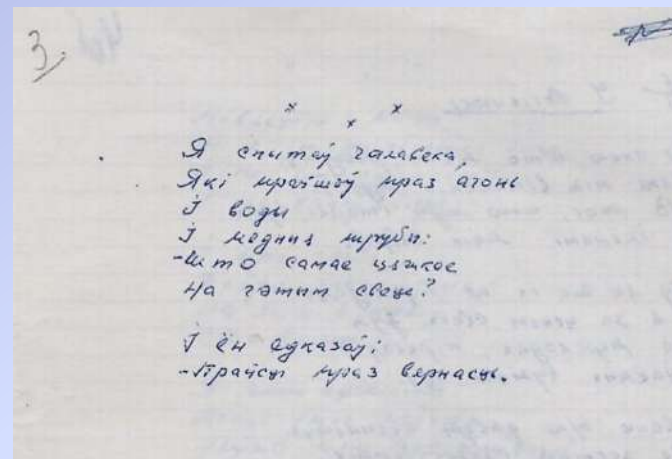 3.
* * *
Я спытаў чалавека,
Які прайшоў праз агонь
І воды
І медныя трубы:
- Што самае цяжкое
На гэтым свеце?
І ён адказаў:
- Прайсці праз вернасць.